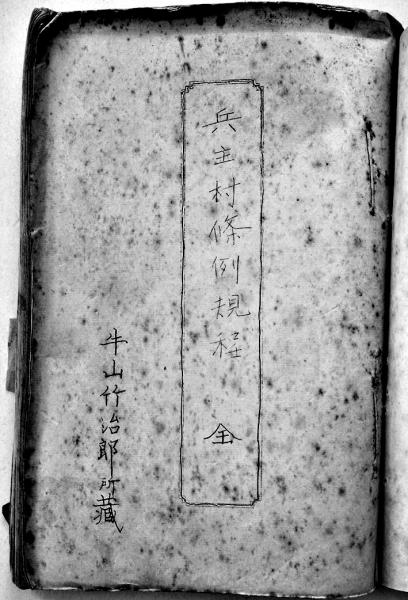 兵主村條例規程 全
牛山竹治郎所藏